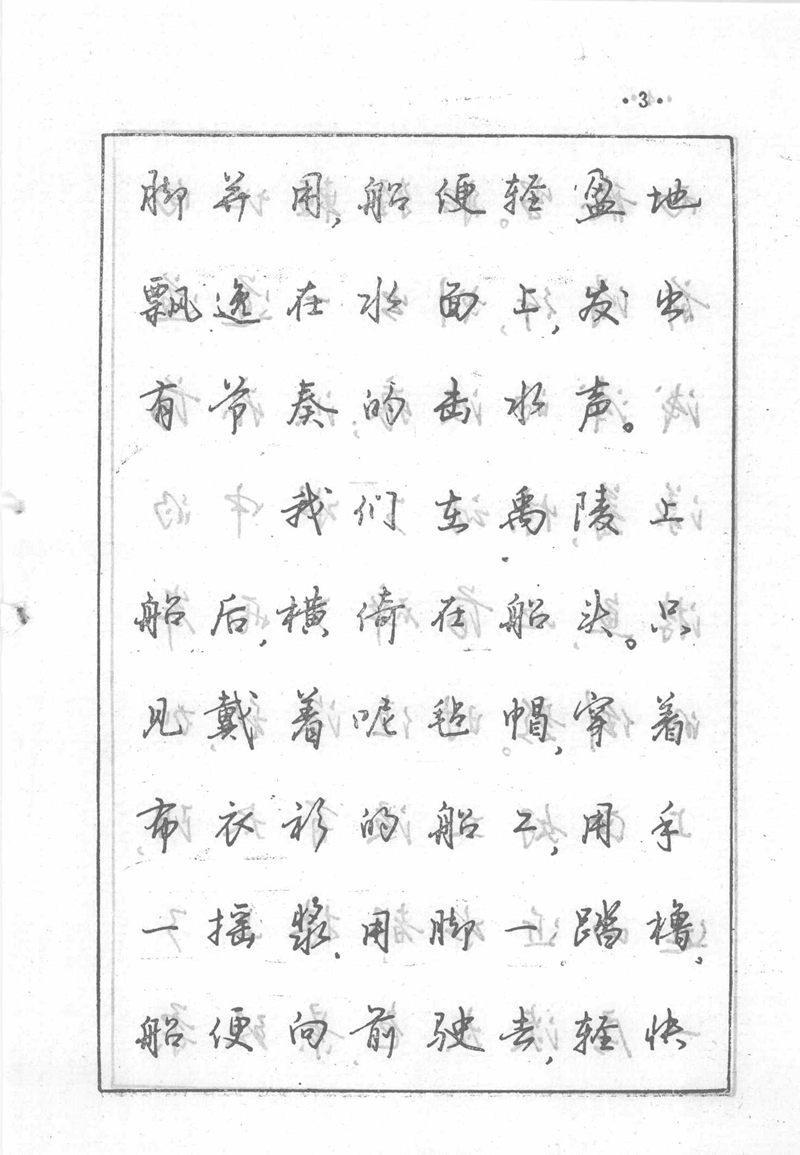 ·3·
脚并用，船便轻盈地
飘逸在水面上，发出
有节奏的击水声。
我们在禹陵上
船后，横倚在船头。只
见戴着呢毡帽，穿着
布衣衫的船工，用手
一摇桨，用脚一踏橹，
船便向前驶去，轻快